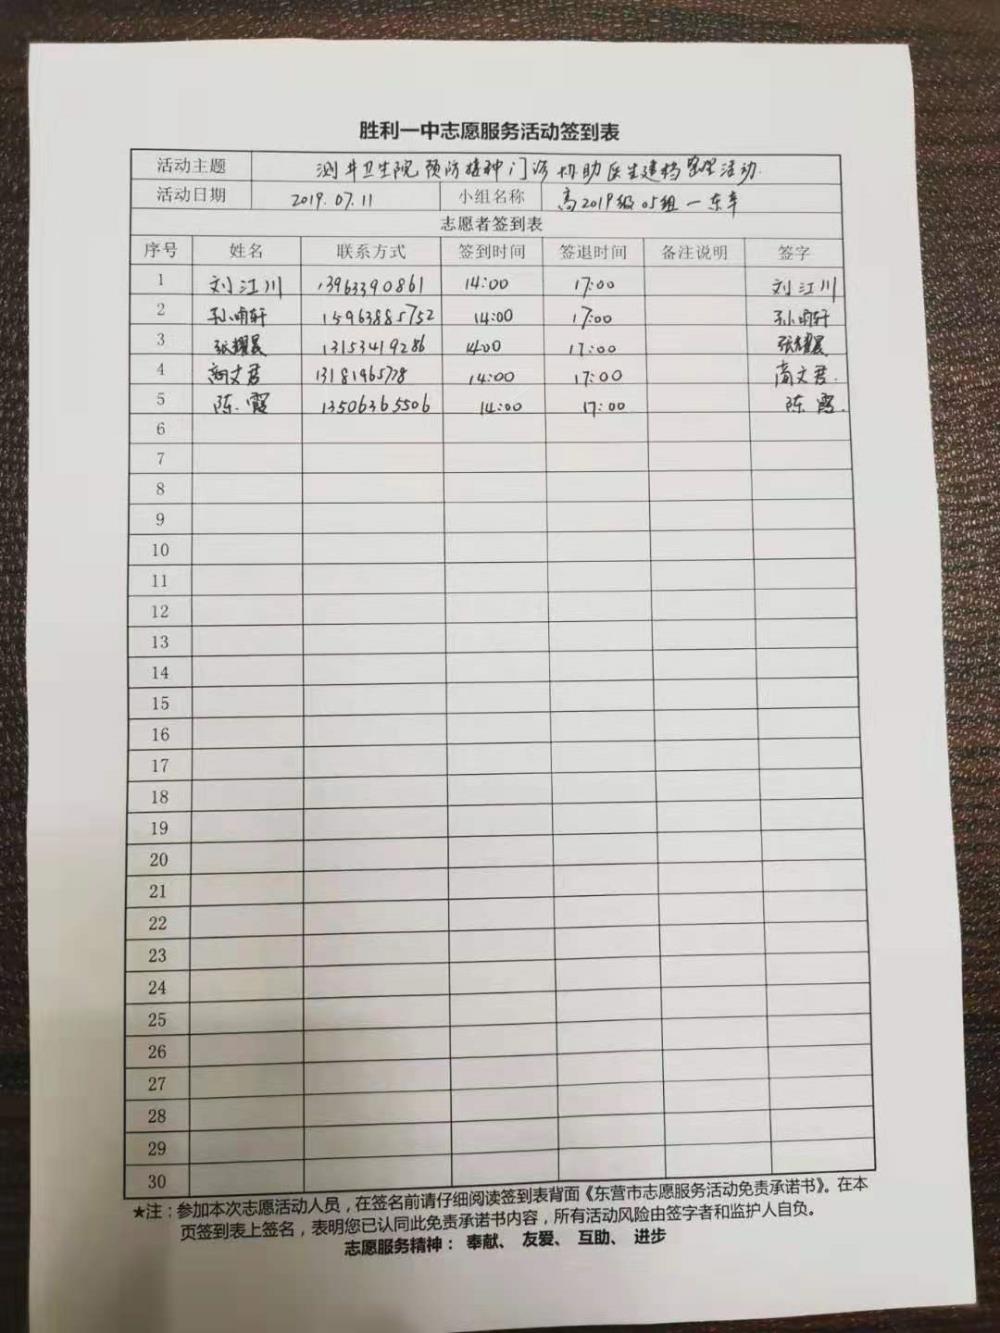 胜利一中志愿服务活动签到表
活动主题 测井卫生院预防接种门诊协助医生建档整理活动.
活动日期 2019.07.11 小组名称 高2019级05组一东辛
志愿者签到表
序号 姓名 联系方式 签到时间 签退时间 备注说明 签字
1 刘江川 13963390861 14:00 17:00 刘江川
2 孙雨轩 15963885752 14:00 17:00 孙雨轩
3 张耀晨 13153419286 14:00 17:00 张耀晨
4 文君 13181965778 14:00 17:00 文君.
5 陈霞 13506365506 14:00 17:00 陈霞.
6
7
8
9
10
11
12
13
14
15
16
17
18
19
20
21
22
23
24
25
26
27
28
29
30
★注：参加本次志愿活动人员，在签名前请仔细阅读签到表背面《东营市志愿服务活动免责承诺书》。在本
页签到表上签名，表明您已认同此免责承诺书内容，所有活动风险由签字者和监护人自负。
志愿服务精神： 奉献、 友爱、 互助、 进步